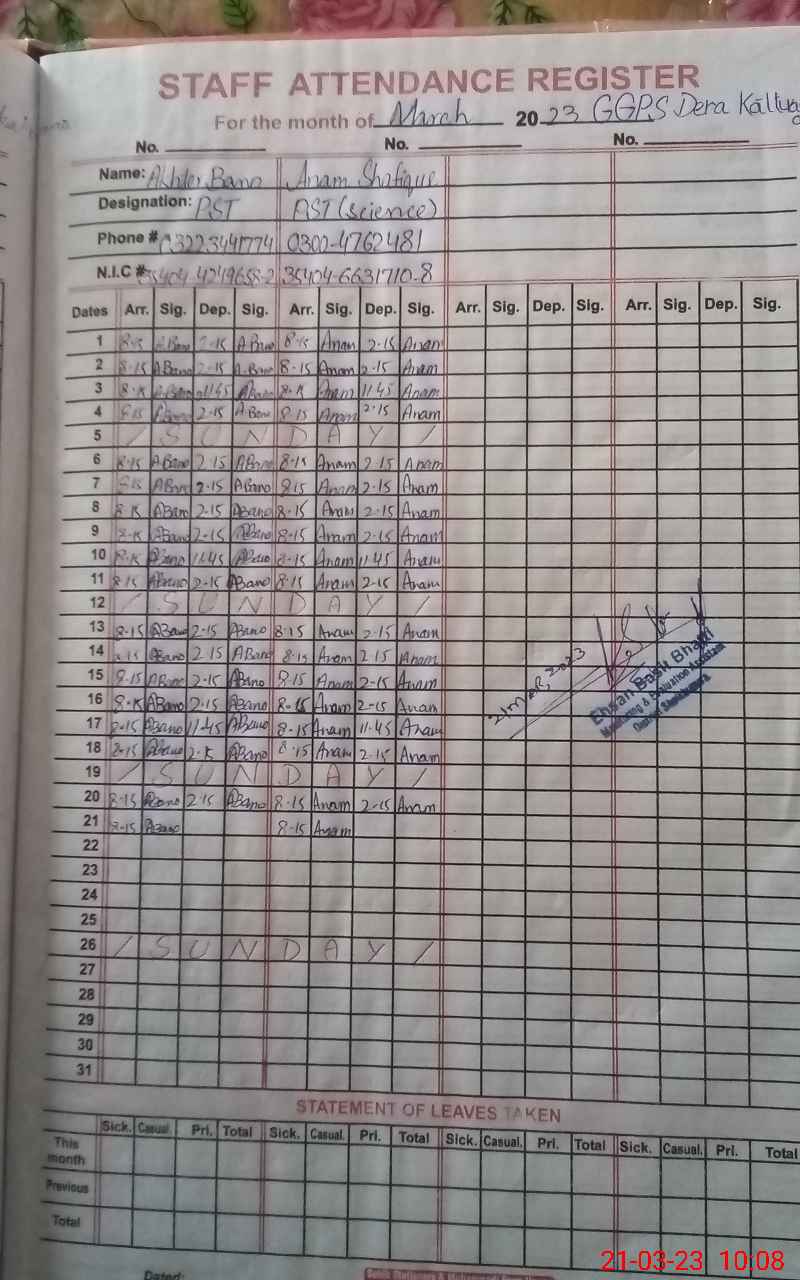 STAFF ATTENDANCE REGISTER
For the month of March 2023 GGPS Dera Kallya
No. No. No.
Name: Akhter Bano Anam Shafique
Designation: PST PST (science)
Phone # 03223441774 0300-4762481
N.I.C # 35404-4249658-2 35404-6631710-8
Dates Arr. Sig. Dep. Sig. Arr. Sig. Dep. Sig. Arr. Sig. Dep. Sig. Arr. Sig. Dep. Sig.
1 8-15 A Bano 2-15 A Bano 8-15 Anam 2-15 Anam
2 8-15 A Bano 2-15 A Bano 8-15 Anam 2-15 Anam
3 8-15 A Bano 11-45 A Bano 8-15 Anam 11-45 Anam
4 8-15 A Bano 2-15 A Bano 8-15 Anam 2-15 Anam
5 / S U N D A Y /
6 8-15 A Bano 2-15 A Bano 8-15 Anam 2-15 Anam
7 8-15 A Bano 2-15 A Bano 8-15 Anam 2-15 Anam
8 8-15 A Bano 2-15 A Bano 8-15 Anam 2-15 Anam
9 8-15 A Bano 2-15 A Bano 8-15 Anam 2-15 Anam
10 8-15 A Bano 11-45 A Bano 8-15 Anam 11-45 Anam
11 8-15 A Bano 2-15 A Bano 8-15 Anam 2-15 Anam
12 / S U N D A Y /
13 8-15 A Bano 2-15 A Bano 8-15 Anam 2-15 Anam
14 8-15 A Bano 2-15 A Bano 8-15 Anam 2-15 Anam
15 8-15 A Bano 2-15 A Bano 8-15 Anam 2-15 Anam
16 8-15 A Bano 2-15 A Bano 8-15 Anam 2-15 Anam
17 8-15 A Bano 11-45 A Bano 8-15 Anam 11-45 Anam
18 8-15 A Bano 2-15 A Bano 8-15 Anam 2-15 Anam
19 / S U N D A Y /
20 8-15 A Bano 2-15 A Bano 8-15 Anam 2-15 Anam
21 8-15 A Bano 8-15 Anam
22
23
24
25
26 / S U N D A Y /
27
28
29
30
31
21 MAR, 2023
Ehsan Basit Bhatti
Monitoring & Evaluation Assistant
District Sheikhupura
STATEMENT OF LEAVES TAKEN
Sick. Casual. Pri. Total Sick. Casual. Pri. Total Sick. Casual. Pri. Total Sick. Casual. Pri. Total
This month
Previous
Total
Dated:
21-03-23 10:08